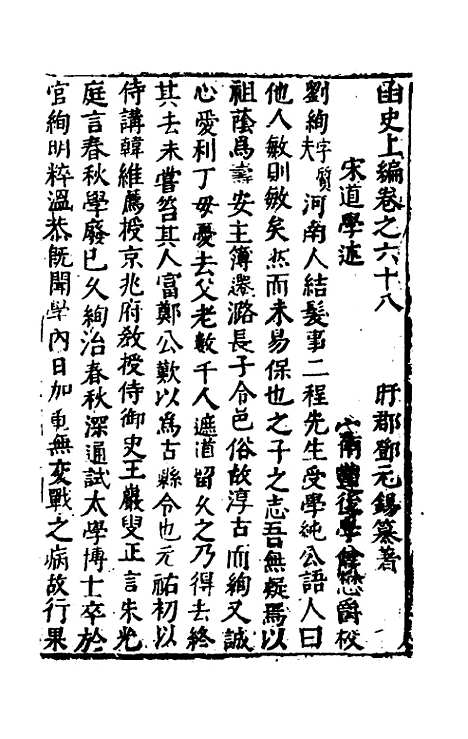 函史上編卷之六十八 盱郡鄧元錫纂著
宋道學述 南豐後學 爵校
劉絢字質夫河南人結髮事二程先生受學純公語人曰
他人敏則敏矣然而未易保也之子之志吾無疑焉以
祖蔭爲壽安主簿遷潞長子令邑俗故淳古而絢又誠
心愛利丁母憂去父老數千人遮道留久之乃得去終
其去未嘗笞其人富鄭公歎以爲古縣令也元祐初以
侍講韓維薦授京兆府敎授侍御史王巖叟正言朱光
庭言春秋學廢已久絢治春秋深通試太學博士卒於
官絢明粹溫恭旣聞學內日加重無交戰之病故行果